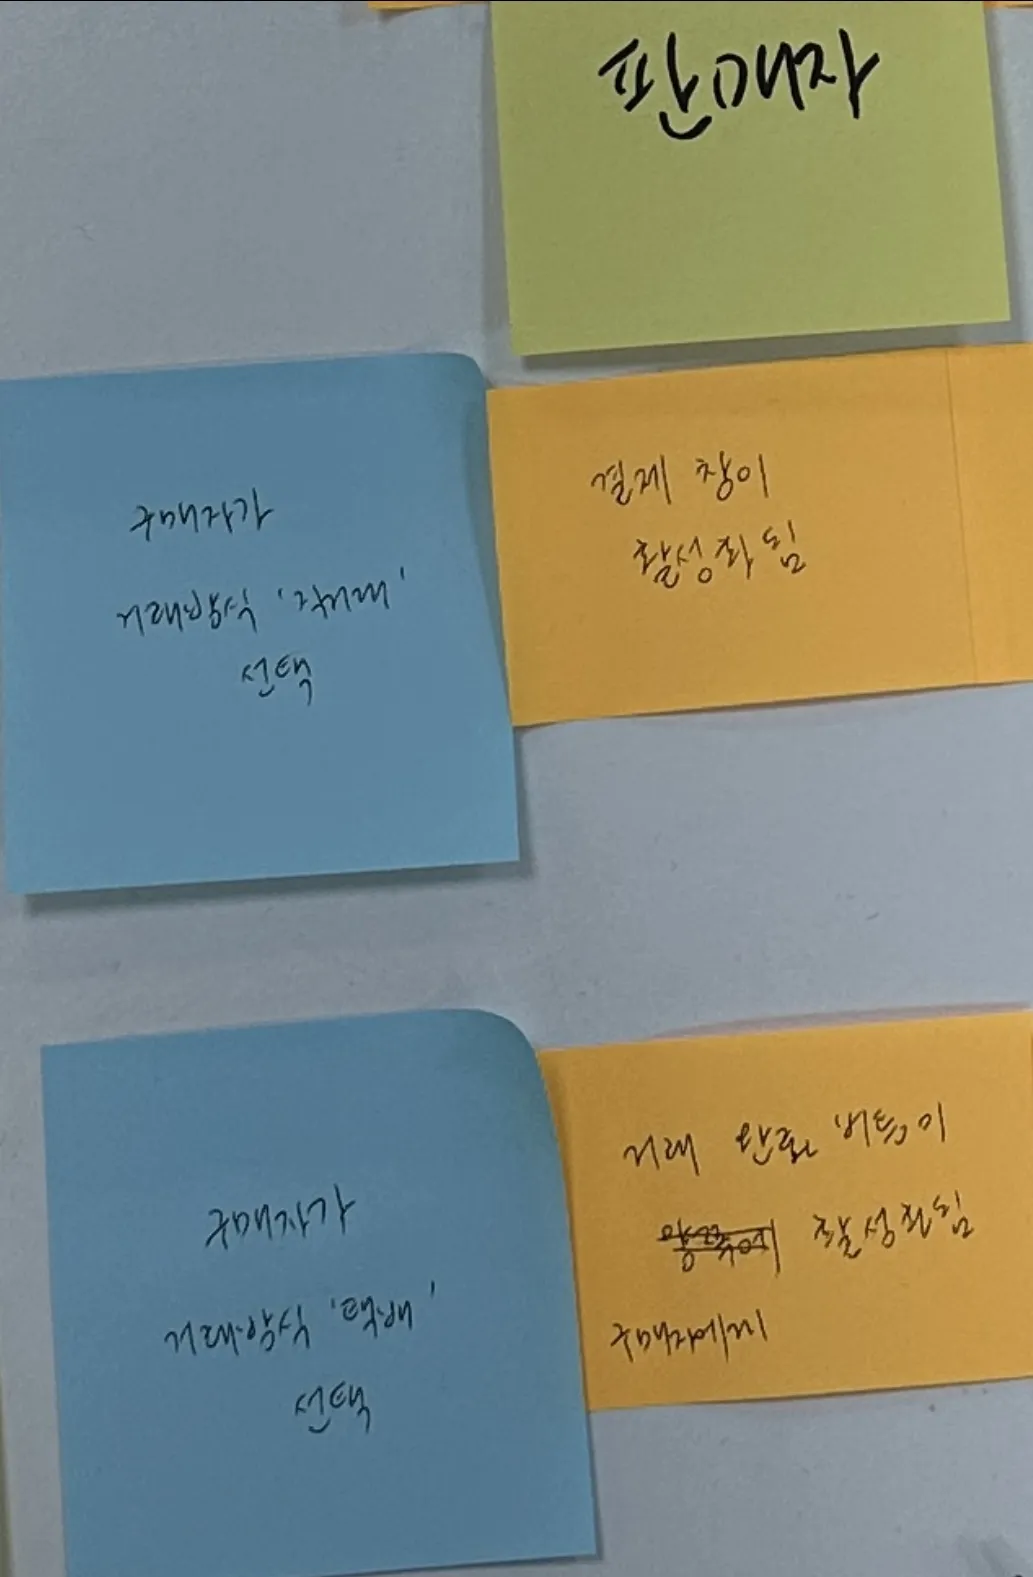 판매자
구매자가
거래방식 '직거래'
선택
결제 창이
활성화됨
구매자가
거래방식 '택배'
선택
거래 완료 버튼이
활성화됨
구매자에게